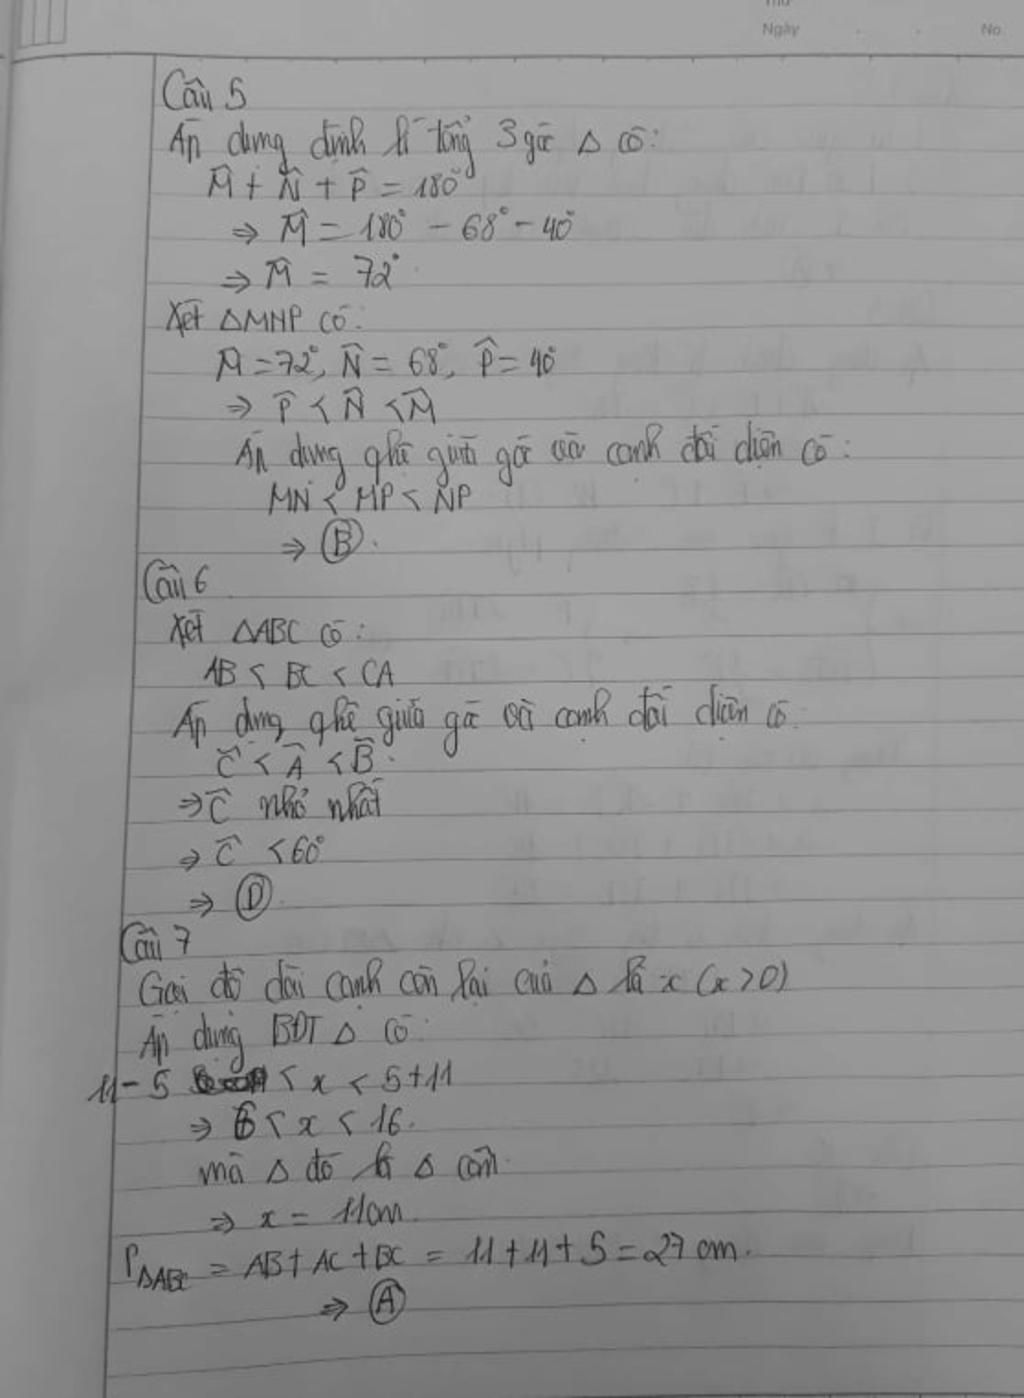 Thứ
Ngày . . No.
Câu 5
Áp dụng định lí tổng 3 góc Δ có:
M̂ + N̂ + P̂ = 180°
⇒ M̂ = 180° - 68° - 40°
⇒ M̂ = 72°
Xét ΔMNP có:
M̂ = 72°, N̂ = 68°, P̂ = 40°
⇒ P̂ < N̂ < M̂
Áp dụng qhệ giữa góc và cạnh đối diện có:
MN < MP < NP
⇒ Ⓑ.
Câu 6
Xét ΔABC có:
AB < BC < CA
Áp dụng qhệ giữa góc và cạnh đối diện có:
Ĉ < Â < B̂.
⇒ Ĉ nhỏ nhất
⇒ Ĉ < 60°
⇒ Ⓓ.
Câu 7
Gọi độ dài cạnh còn lại của Δ là x (x > 0)
Áp dụng BĐT Δ có:
11 - 5 < x < 5 + 11
⇒ 6 < x < 16.
mà Δ đó là Δ cân.
⇒ x = 11cm.
PΔABC = AB + AC + BC = 11 + 11 + 5 = 27 cm.
⇒ Ⓐ